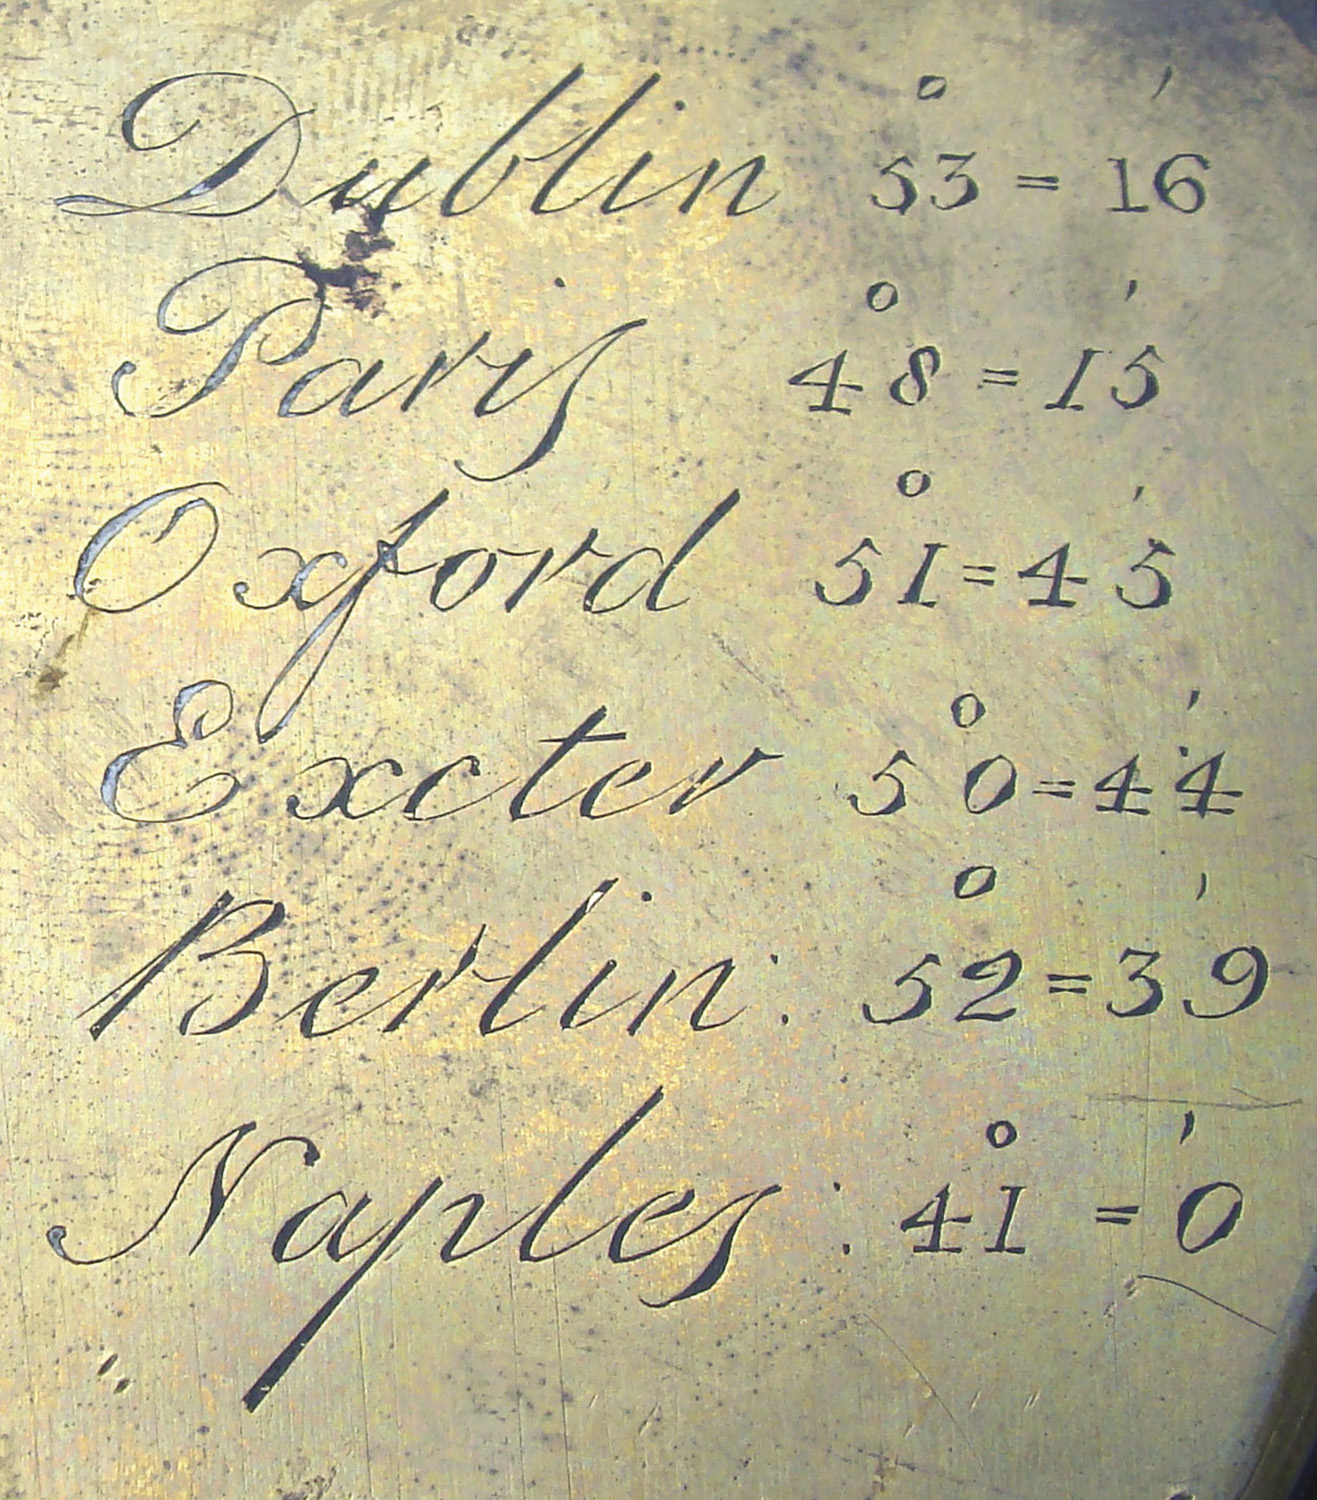 Dublin 53° = 16'
Paris 48° = 15'
Oxford 51° = 45'
Exeter 50° = 44'
Berlin: 52° = 39'
Naples: 41° = 0'